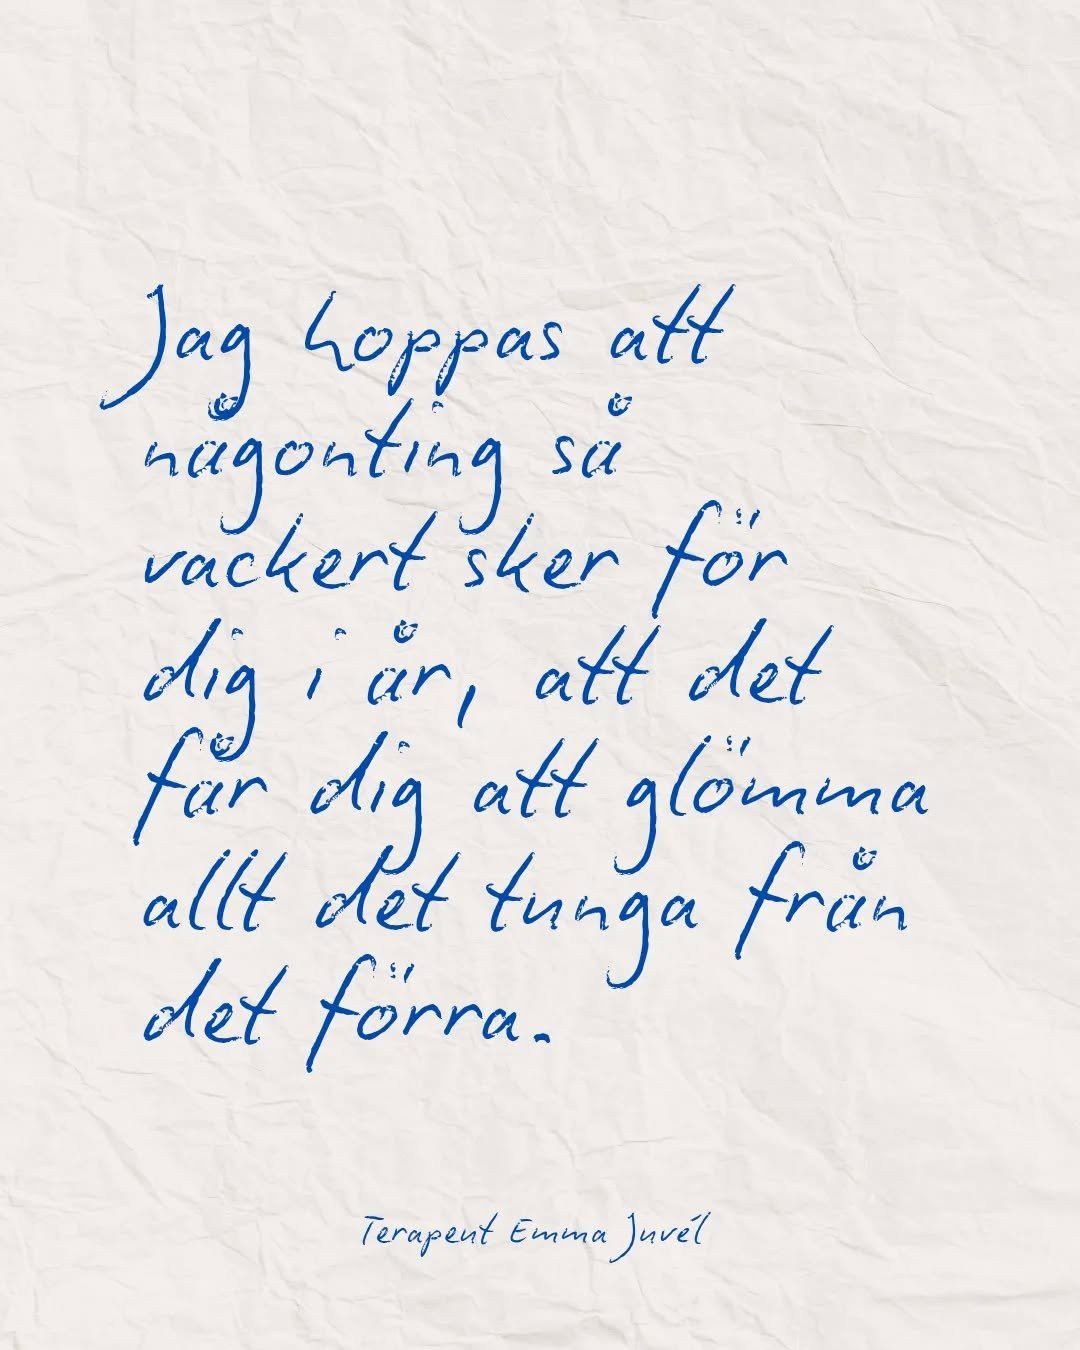 Jag hoppas att
någonting så
vackert sker för
dig i år, att det
får dig att glömma
allt det tunga från
det förra.
Terapeut Emma Juvél